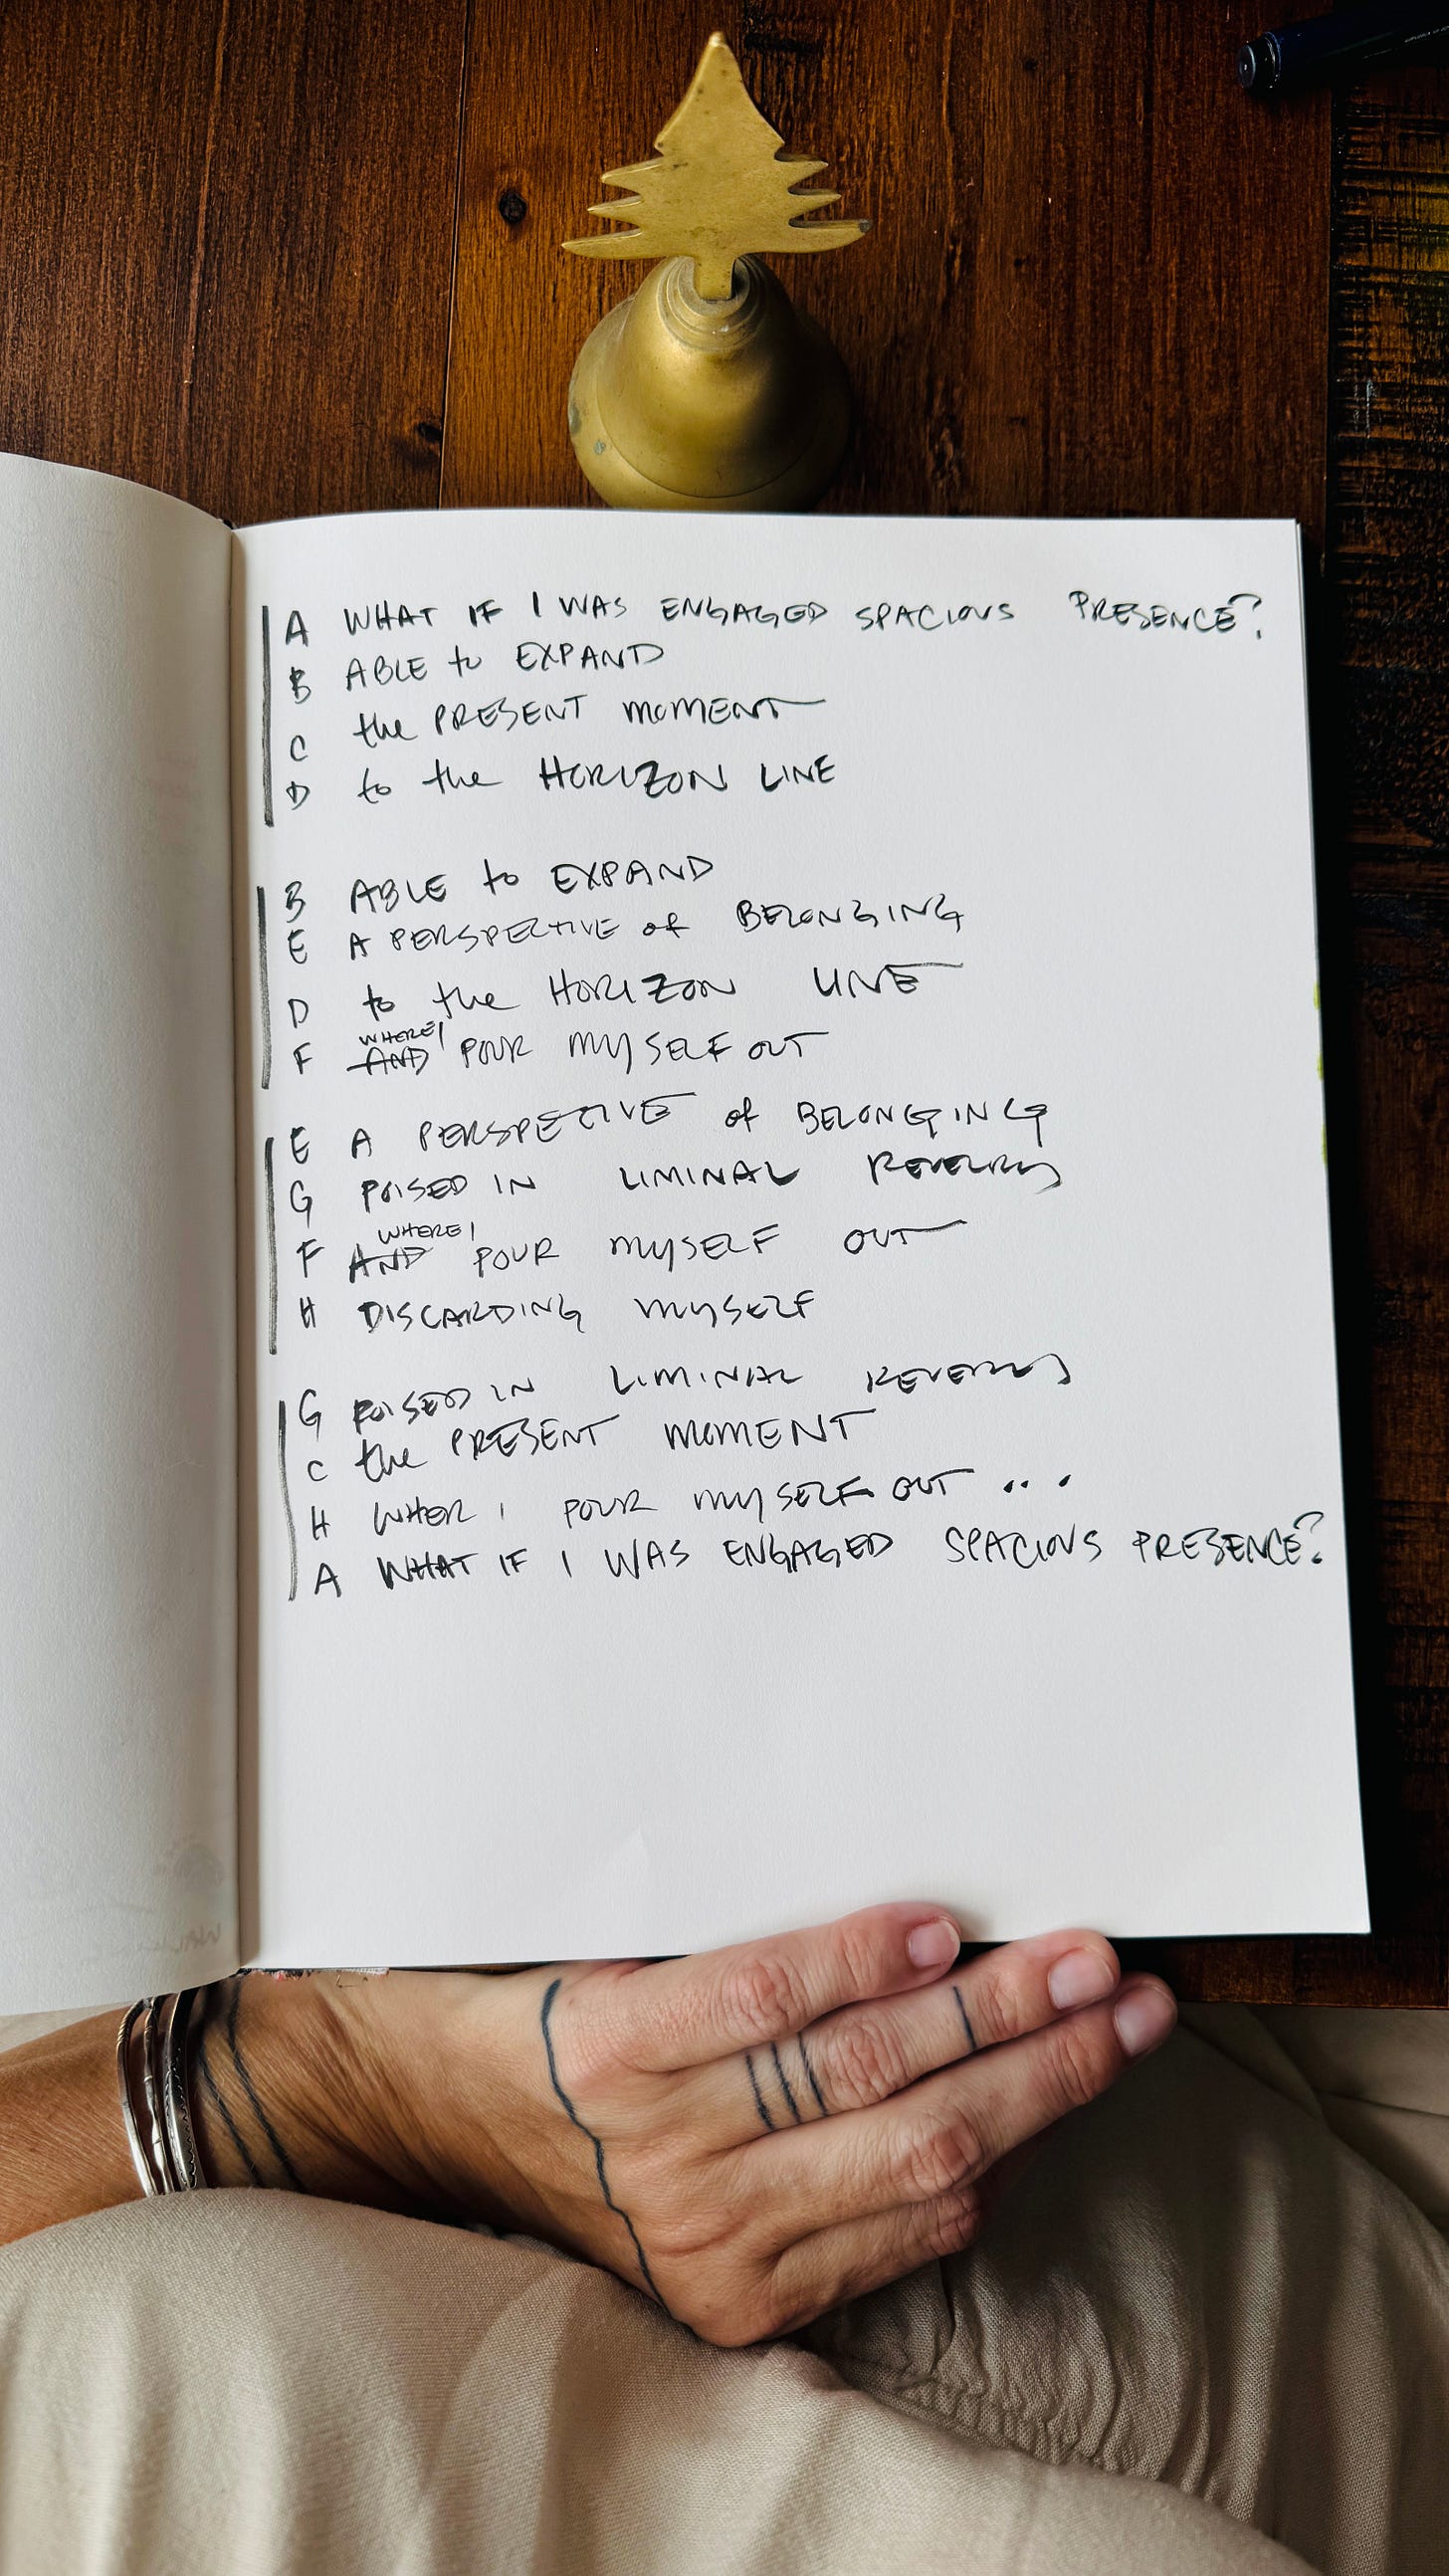 A WHAT IF I WAS ENGAGED SPACIOUS PRESENCE?
B ABLE to EXPAND
C the PRESENT MOMENT
D to the HORIZON LINE
B ABLE to EXPAND
E A PERSPECTIVE of BELONGING
D to the HORIZON LINE
WHERE I
F AND POUR MYSELF OUT
E A PERSPECTIVE of BELONGING
G POISED IN LIMINAL REVELRY
WHERE I
F AND POUR MYSELF OUT
H DISCARDING MYSELF
G POISED IN LIMINAL
C the PRESENT MOMENT
H WHER I POUR MYSELF OUT ...
A WHAT IF I WAS ENGAGED SPACIOUS PRESENCE?